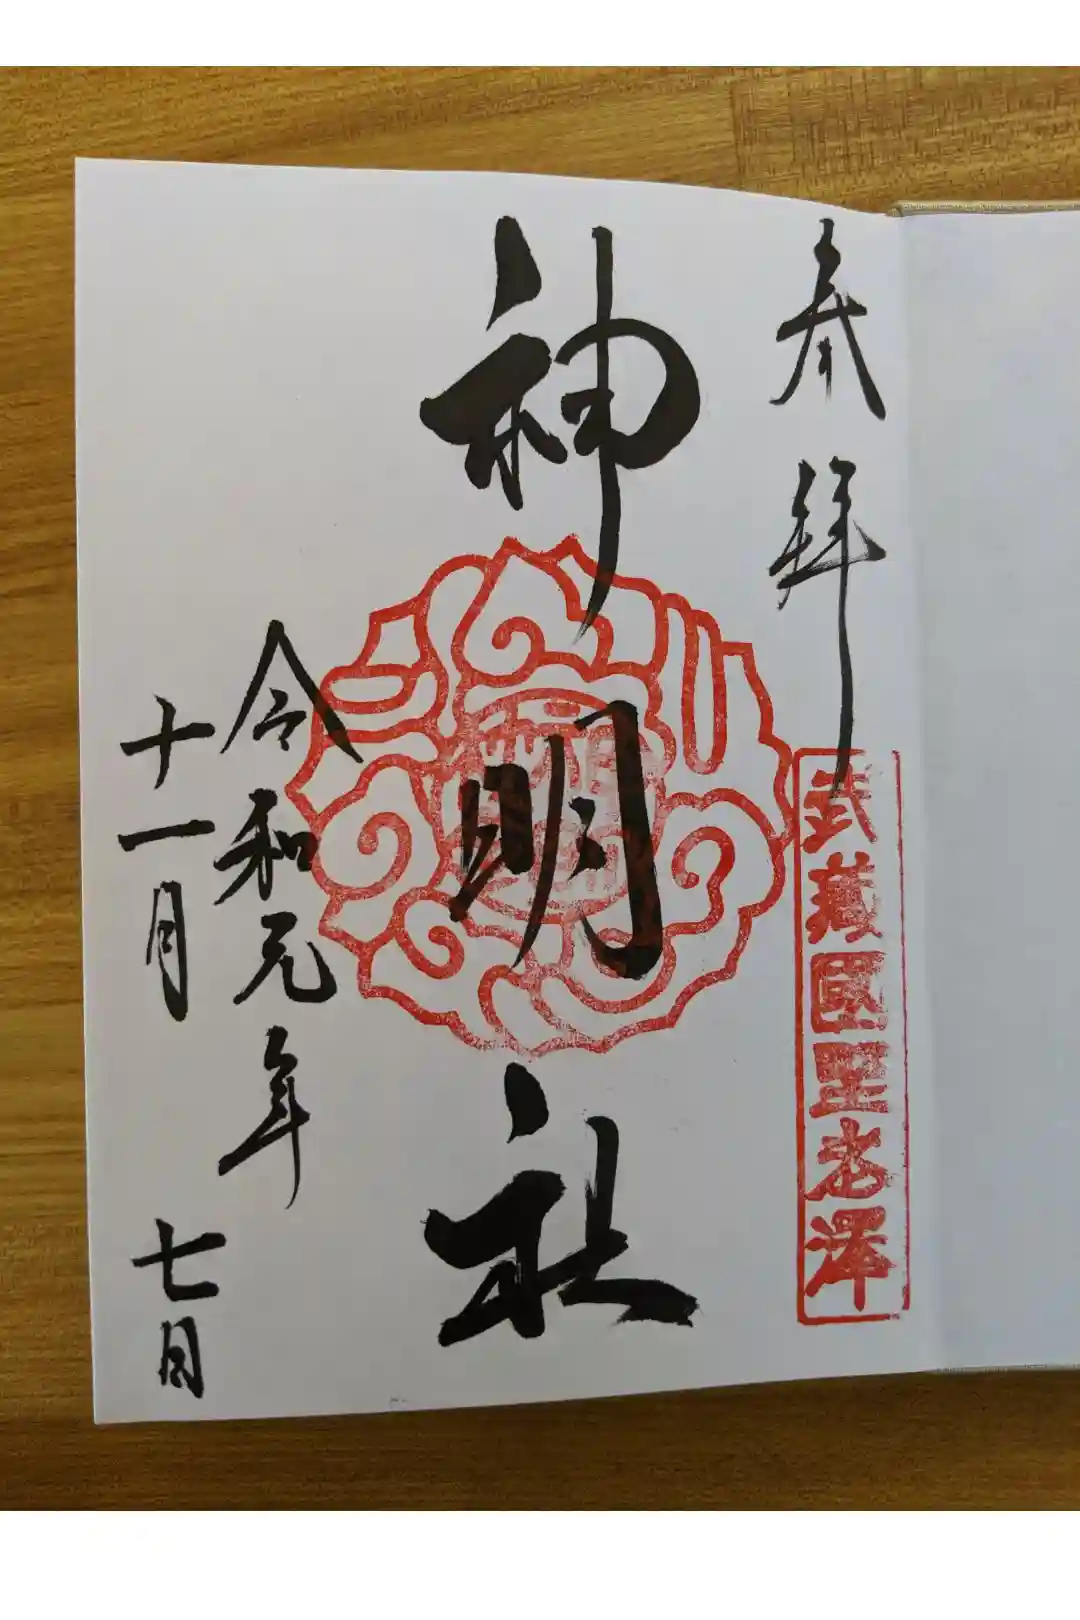 奉拝
武藏國野老澤
神明社
令和元年
十一月七日